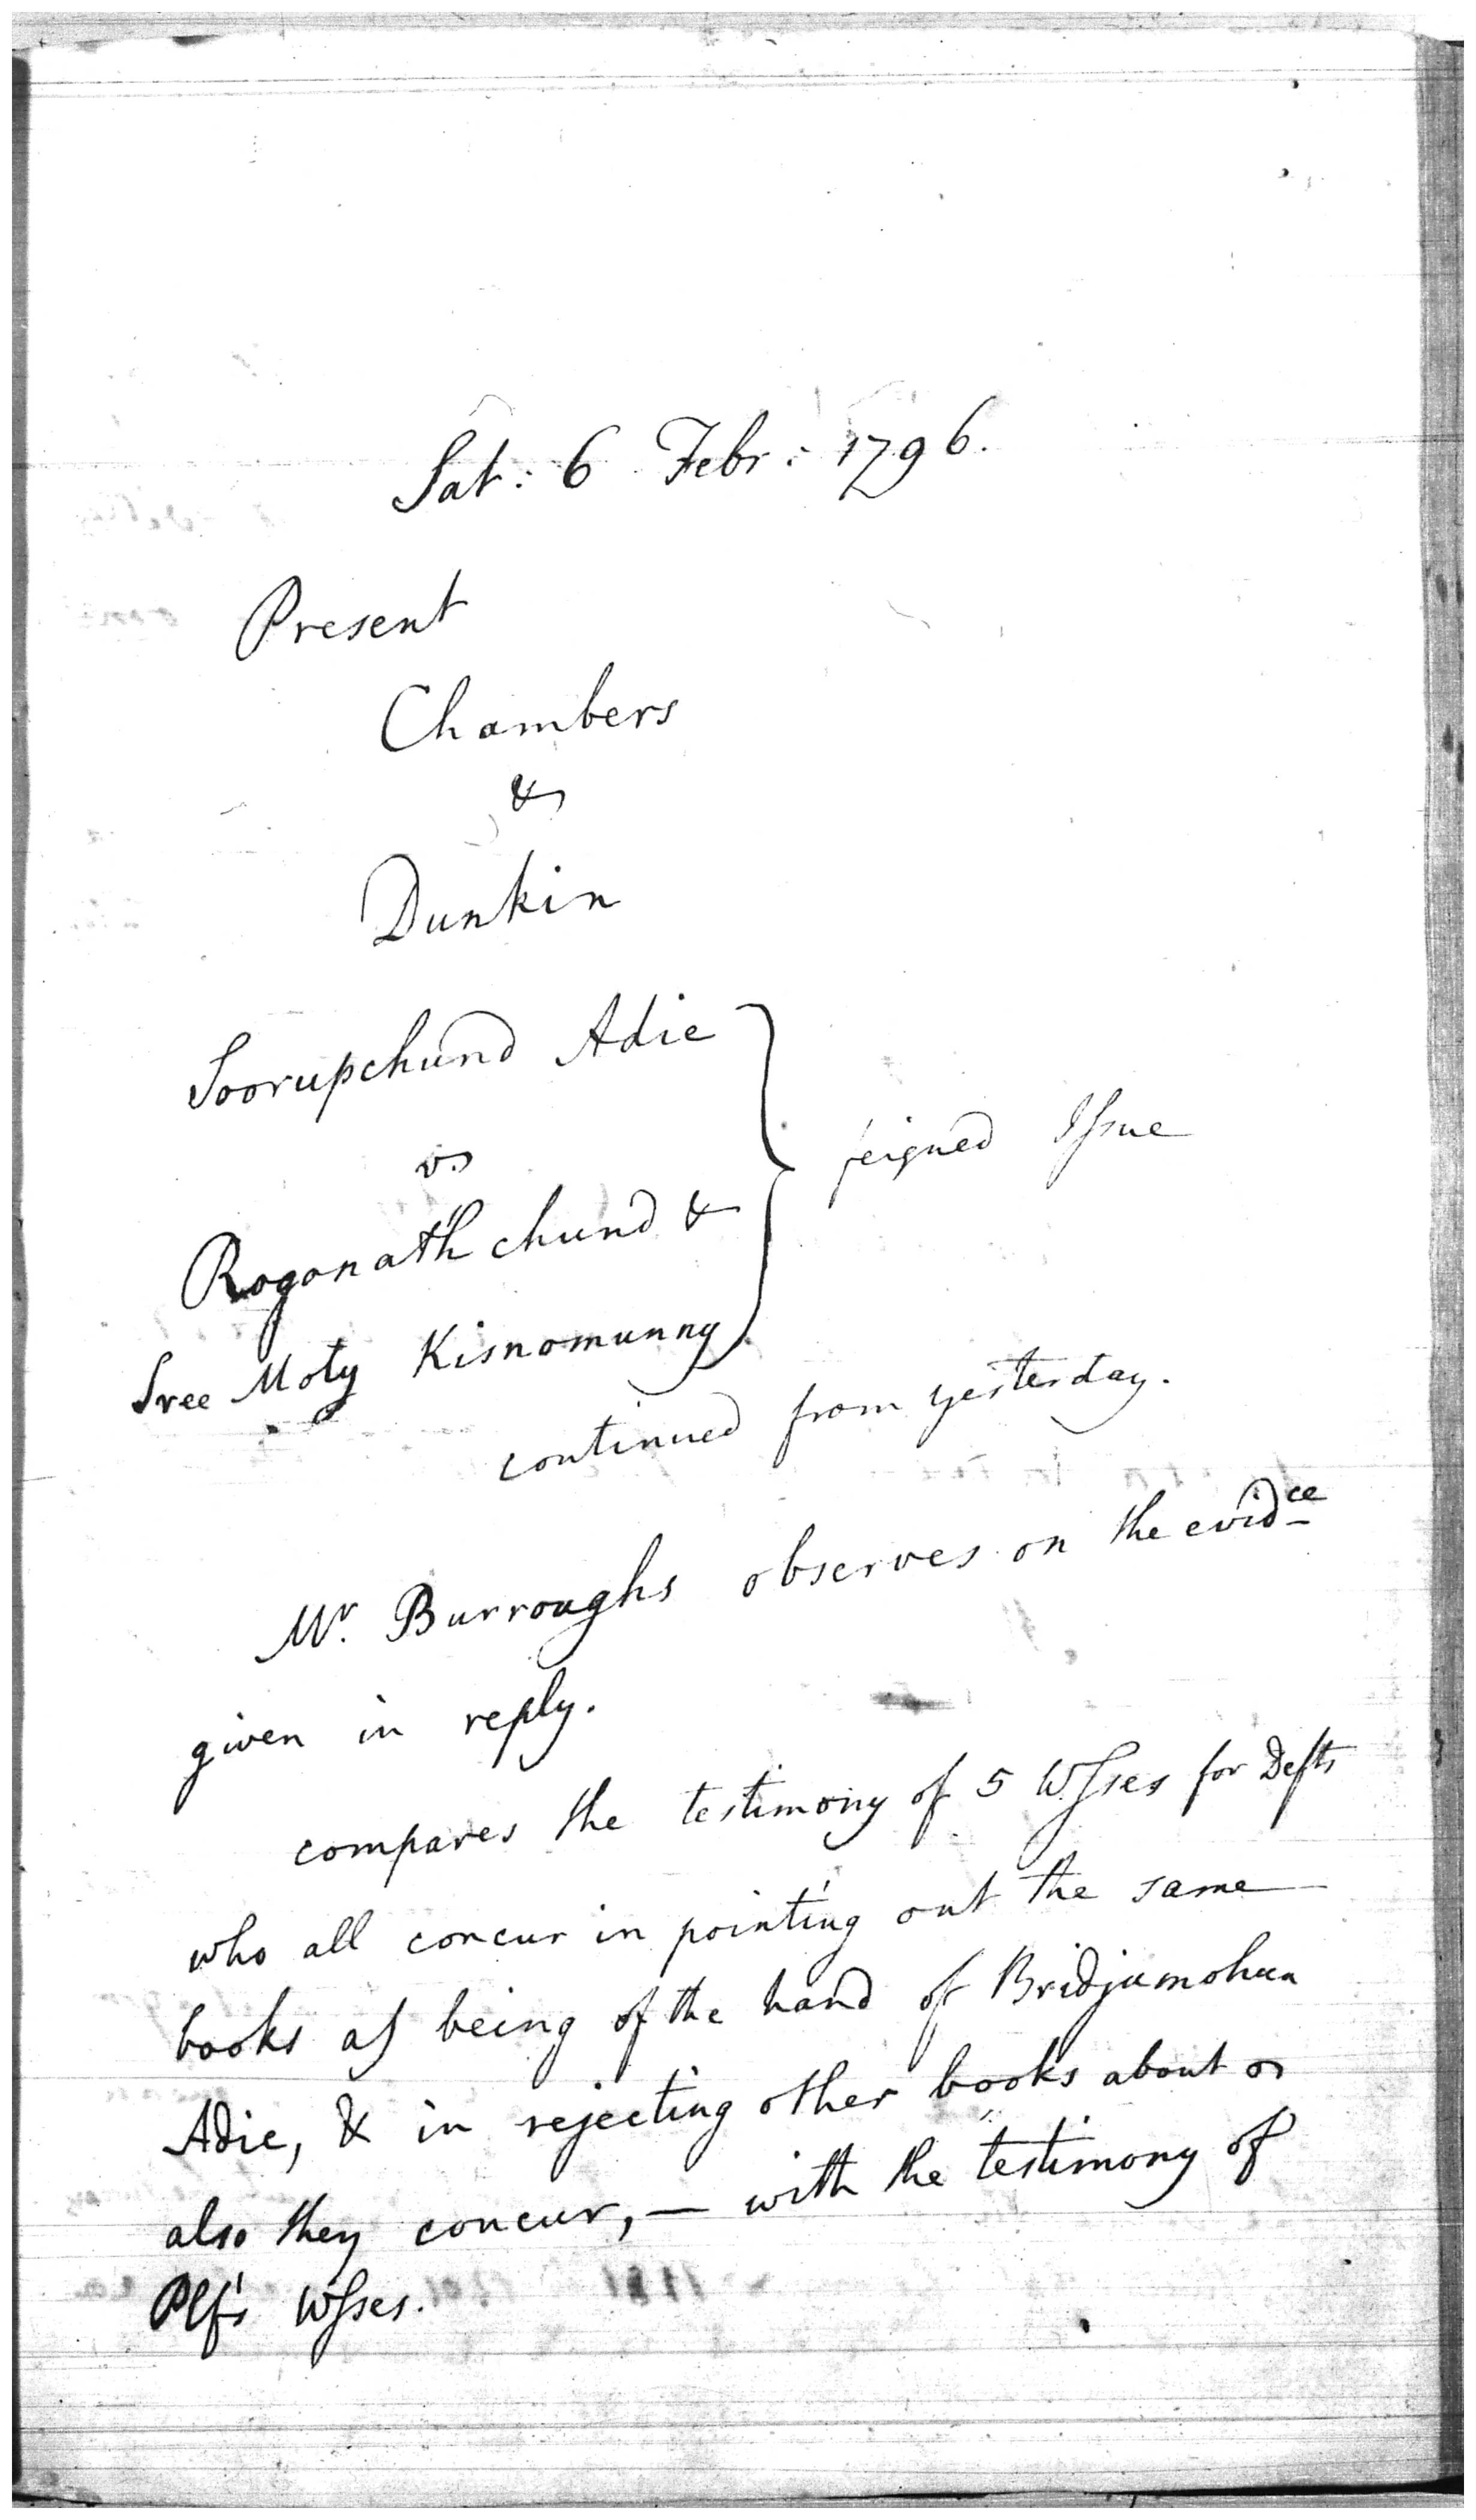 Sat: 6 Febr: 1796.
Present
Chambers
&
Dunkin
Soorupchund Adie
vs
feigned Issue
Rogonath chund &
Sree Moty Kisnomunny
continued from yesterday.
Mr. Burroughs observes on the evidce
given in reply.
compares the testimony of 5 Wsses for Defts
who all concur in pointing out the same
books as being of the hand of Bridjumohun
Adie, & in rejecting other books about
also they concur, — with the testimony of
Plf's Wsses.